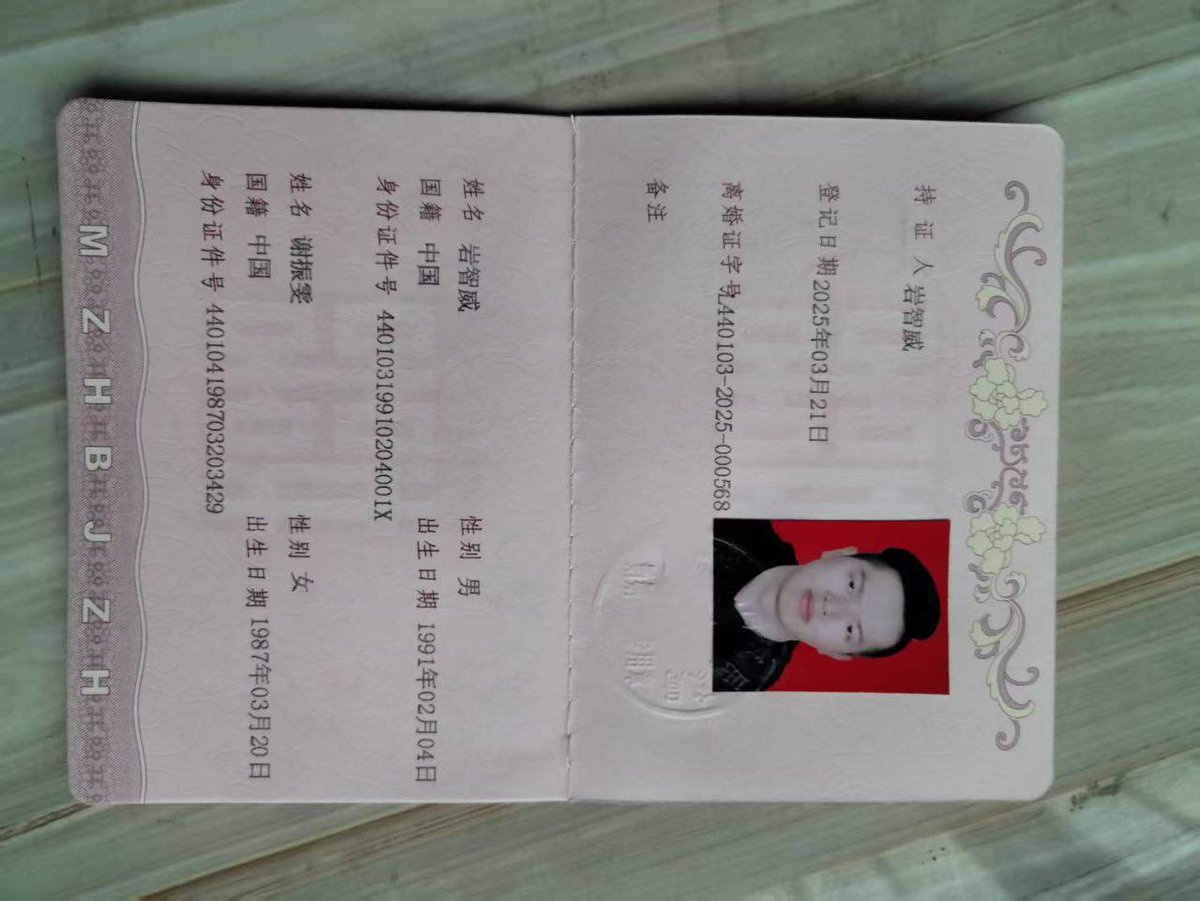 持证人 岩智威
登记日期 2025年03月21日
离婚证字号 L440103-2025-000568
备注
姓名 岩智威 性别 男
国籍 中国 出生日期 1991年02月04日
身份证件号 44010319910204001X
姓名 谢振雯 性别 女
国籍 中国 出生日期 1987年03月20日
身份证件号 440104198703203429
MZHBJZH